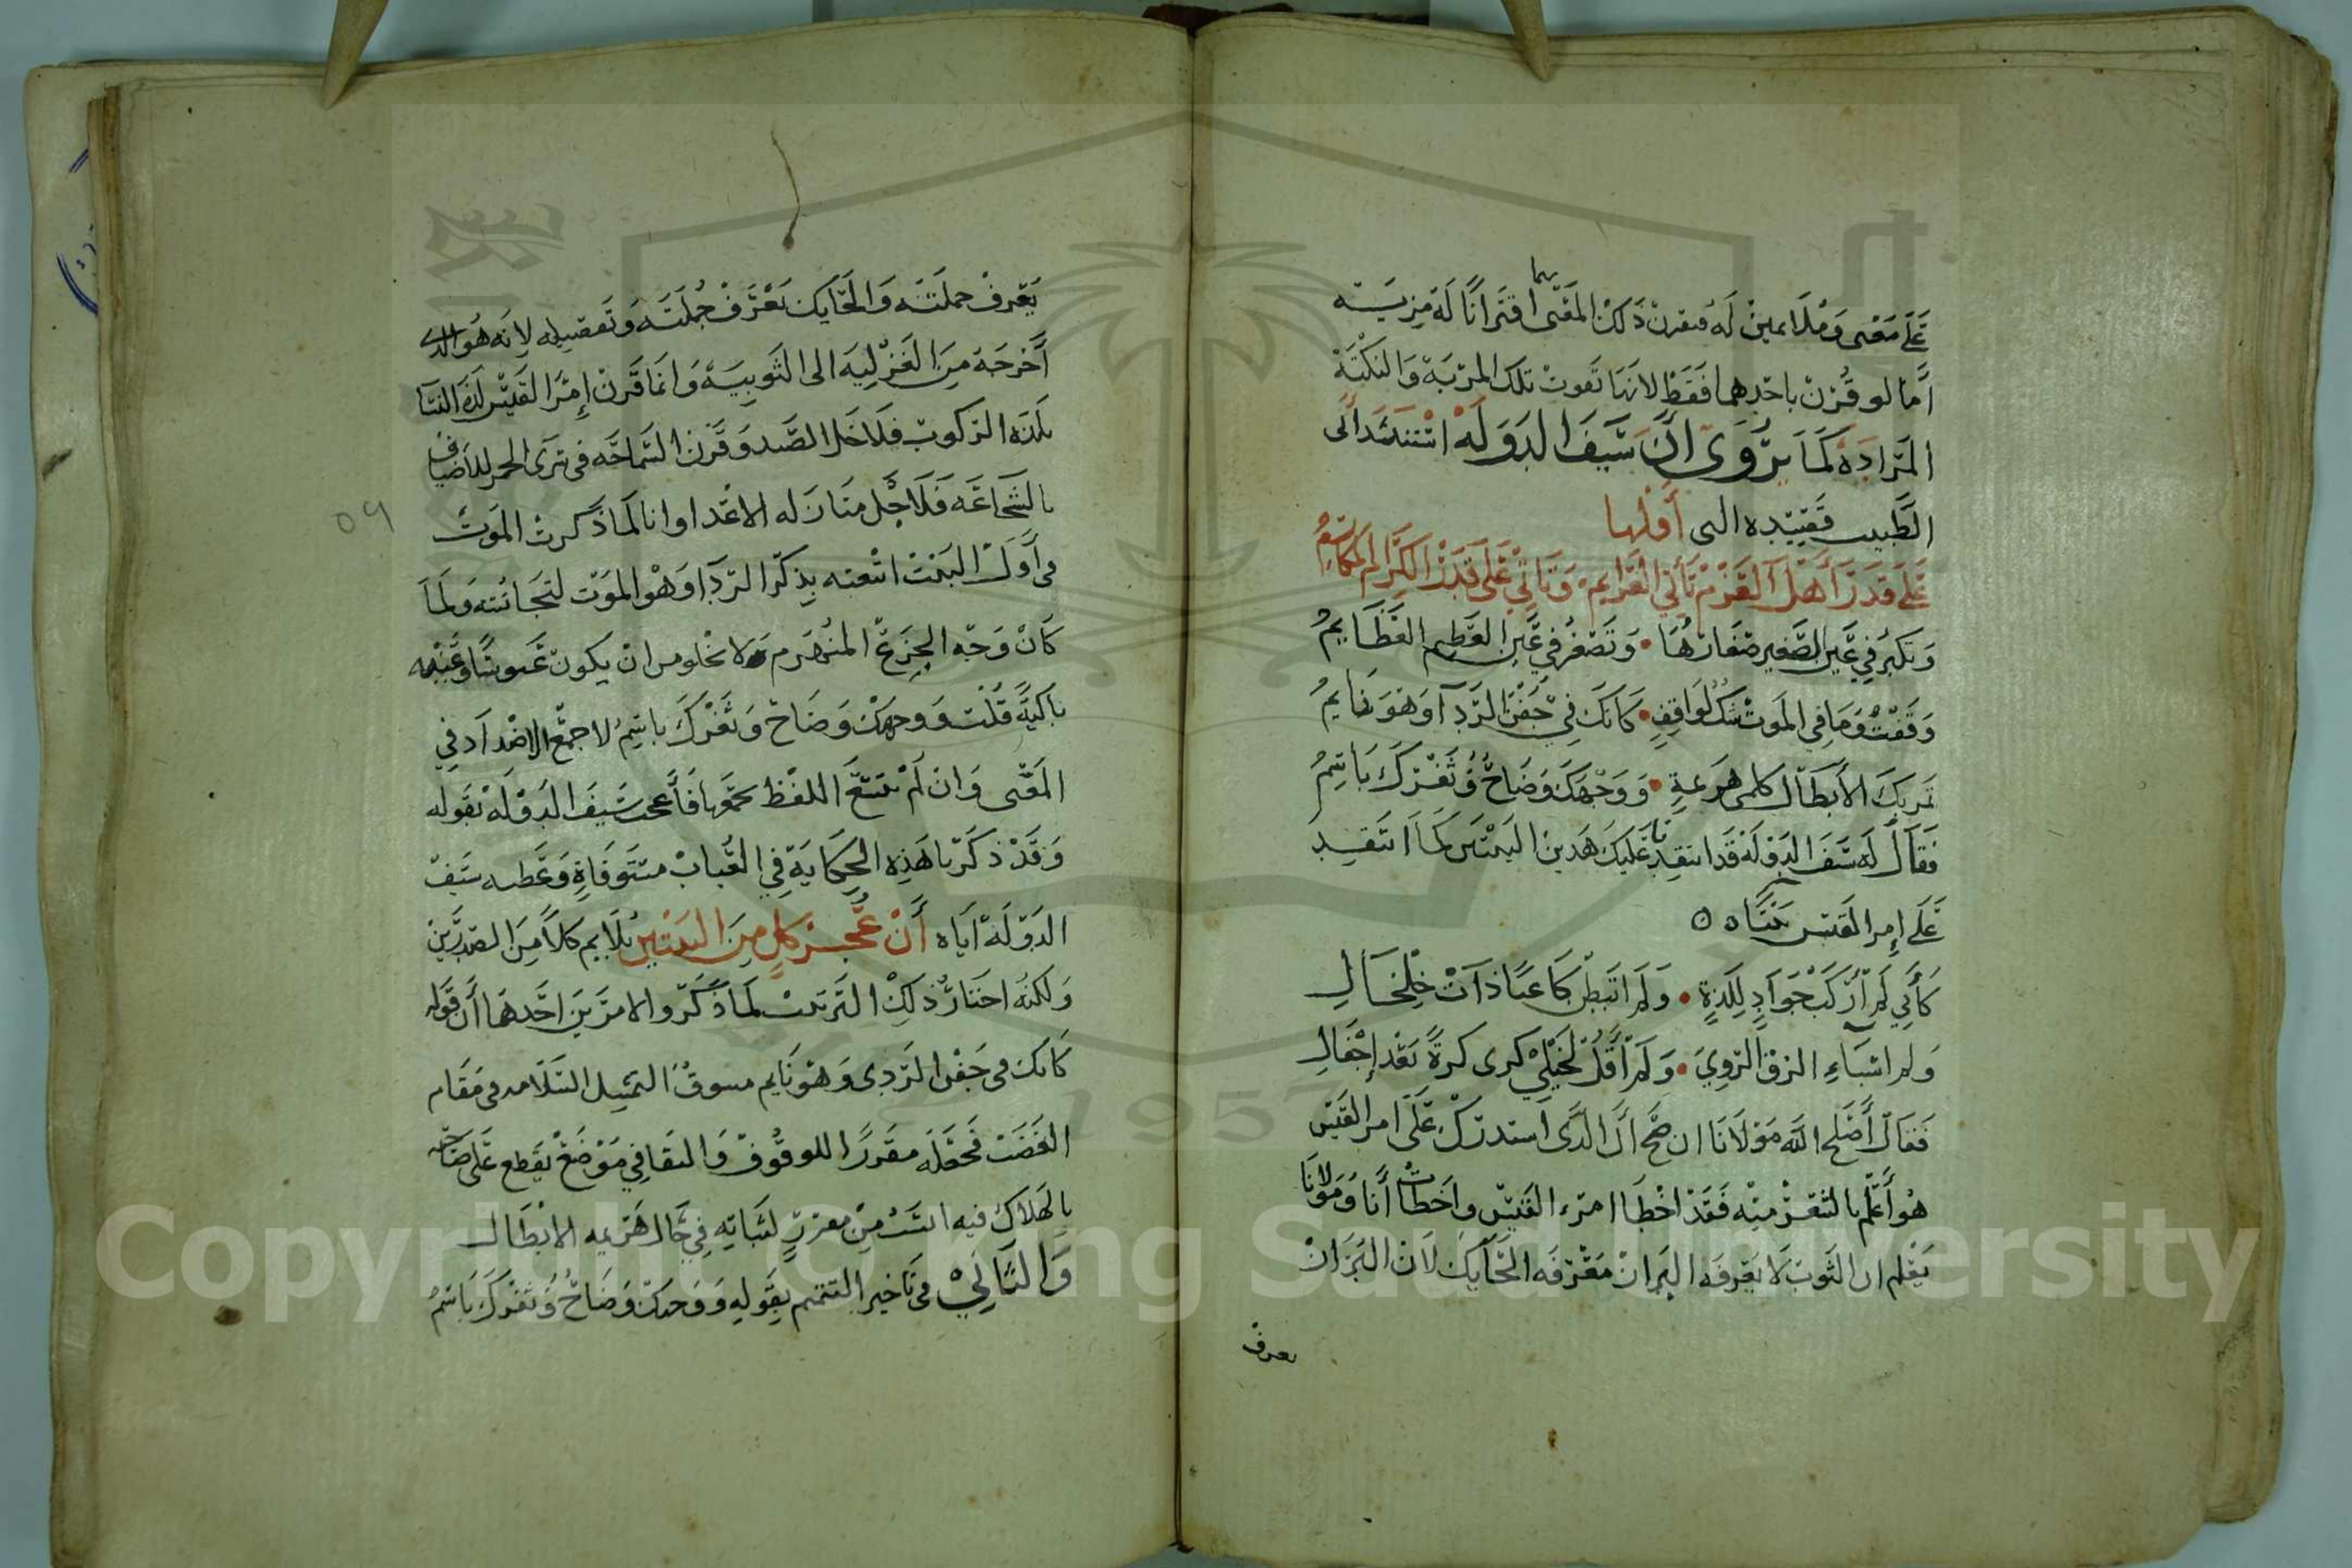 على معنى وملايمين له فيقرن ذلك المعنى بهما اقترانا له مزيته
أما لو قُرن باحدهما فقط لانها تفوت تلك المرتبة والنكتة
المرادة كما يروى ان سيف الدولة استنشد ابي
الطيب قصيدته التى أولها
على قدر أهل العزم تأتي العزايم وتاتي على قدر الكرام المكارم
وتكبر في عين الصغير صغارها • وتصغر في عين العظيم العظايم
وقفت وما في الموت شك لواقف • كانك في جفن الردا وهو نايم
تمر بك الأبطال كلمى هزيمة • ووجهك وضاح وثغرك باسم
فقال له سيف الدولة قد انتقدنا عليك هذين البيتين كما انتقد
على إمرا القيس بيتاه ه
كأني لم أركب جواد للذة • ولم اتبطن كاعبا ذات خلخال
ولم اسباء الزق الروي • ولم أقل لخيلي كرى كرة بعد إجفال
فقال أصلح الله مولانا ان صح أن الذى استدرك على امر القيس
هو أعلم بالشعر منه فقد اخطا امرء القيس واخطات أنا ومولانا
يعلم ان الثوب لا يعرفه البزان معرفة الحايك لان البزان
يعرف
يعرف جملته والحايك يعرف جملته وتفصيله لانه هو الذى
أخرجه من الغزلية الى الثوبية وانما قرن إمرا القيس لذة النسا
بلذة الركوب فلاجل الصيد وقرن السماحة فى شرى الخمر للاضياف
بالشجاعة فلاجل منازله الاعدا وانا لما ذكرت الموت
فى أول البيت اتبعته بذكر الردا وهو الموت لتجانسه ولما
كان وجه الجزع المنهزم لا يخلو من ان يكون عبوسا وعينه
باكية قلت ووجهك وضاح وثغرك باسم لاجمع الاضداد في
المعنى وان لم يتسع اللفظ بجميعها فأعجب سيف الدولة بقوله
وقد ذكرنا هذه الحكاية في العباب مستوفاة وعطيه سيف
الدولة اياه أن عجز كل من البيتين يلايم كلا من الصدرين
ولكنه اختار ذلك الترتيب لما ذكر والامرين احدهما أن قوله
كانك فى جفن الردى وهو نايم مسوق التمثيل السلامه فى مقام
العضب فجعله مقررا للوقوف والبقا في موضع يقطع على صاحبه
بالهلاك فيه انسب من معزز لثباته في حال هزيمه الابطال
والثاني فى تاخير التتميم بقوله ووجهك وضاح وثغرك باسم
٥٩
Copyright © King Saud University
1957